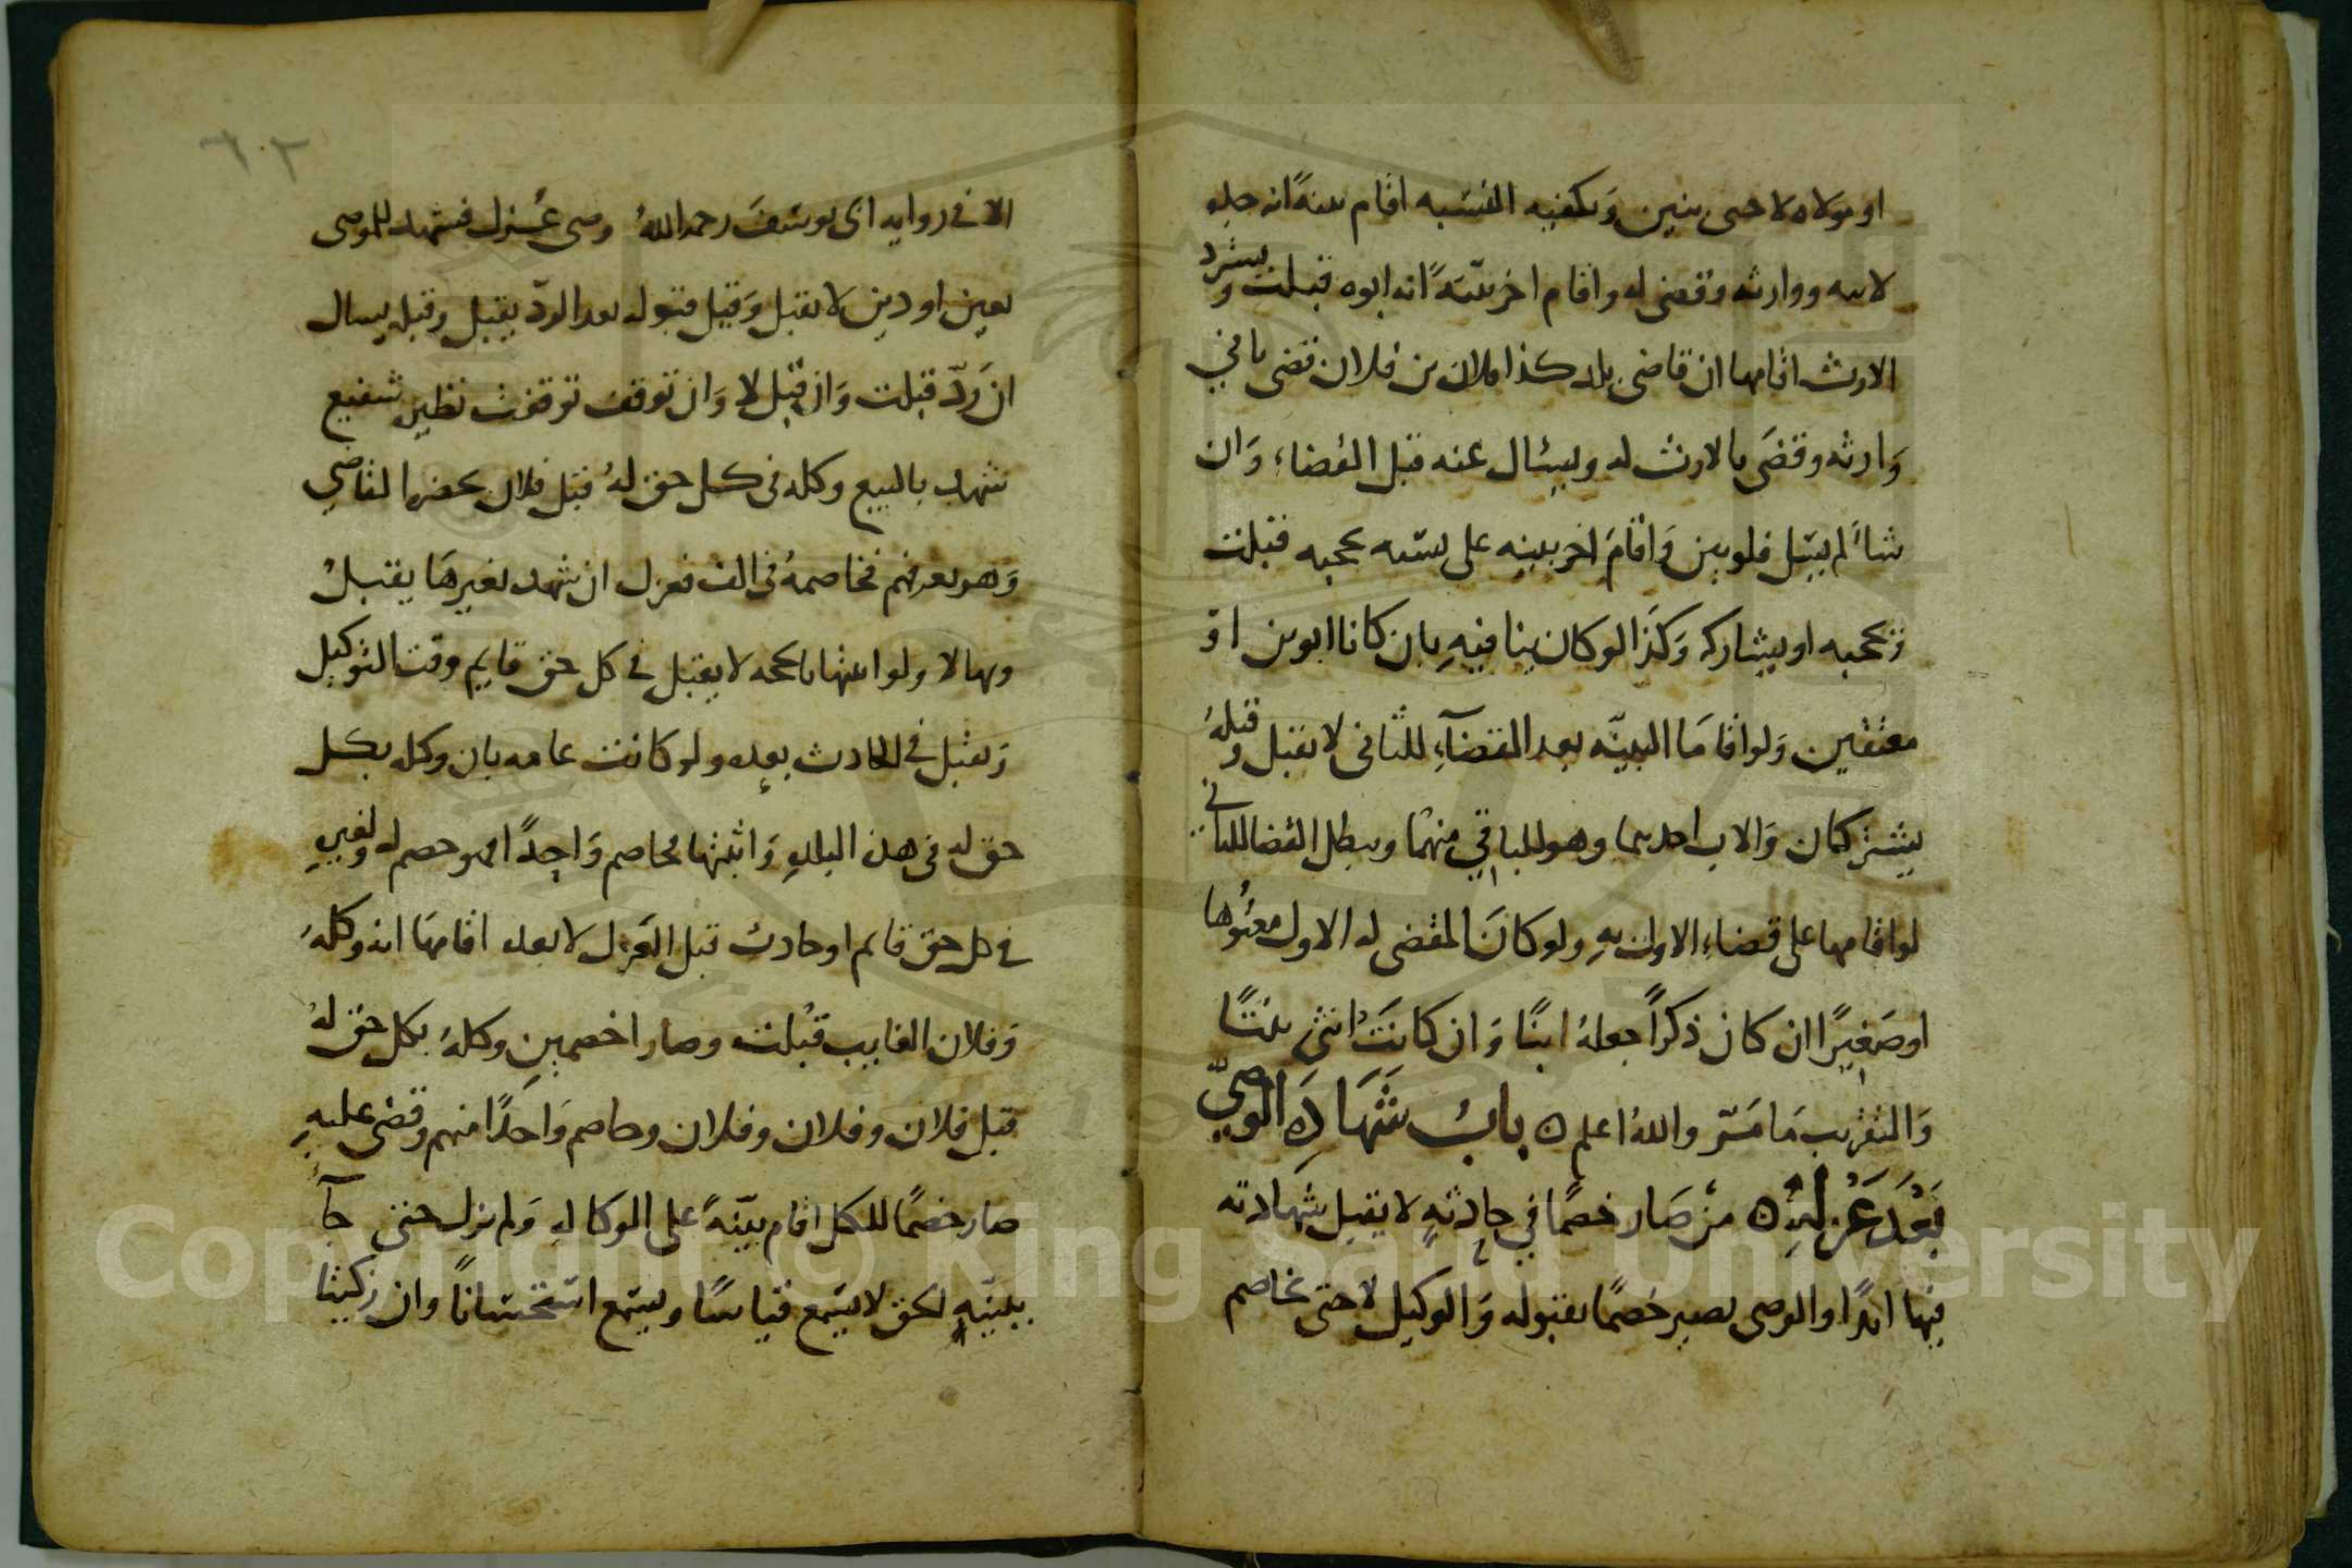 او مولاه لا حتى يبين ويكفيه النسبة اقام بينة انه
لابيه ووارثه وقضى له واقام اخر بينة انه ابوه قبلت ويشرد
الارث اقامها ان قاضي بلد كذا فلان بن فلان قضى باني
وارثه وقضى بالارث له ويسئال عنه قبل القضاء وان
شا لم يسل فلو بين واقام اخر بينه على نسبه يحجبه قبلت
ويحجبه او يشاركه وكذا لو كان ينافيه بان كانا ابوين او
معتقين ولو اقاما البينه بعد القضاء للثاني لا تقبل وقبله
يشتركان والاب احدهما وهو للباقي منهما ويبطل القضا للثاني
لو اقامها على قضاء الاول به ولو كان المقضى له الاول معتوها
او صغيرا ان كان ذكرا جعله ابنا وان كانت انثى بنتا
والتقريب ما مر والله اعلم ه باب شهادة الوصي
بعد عزله ه من صار خصما في حادثة لا يقبل شهادته
فيها ابدا والوصى يصير خصما بقبوله والوكيل لا حتى يخاصم
٦٠٢
الا في رواية ابى يوسف رحمه الله وصى عزل فشهد للموصى
بعين او دين لا تقبل وقيل قبوله بعد الرد يقبل وقبله يسال
ان رد قبلت وان قبل لا وان توقف توقفت نظيره شفيع
شهد بالبيع وكله في كل حق له قبل فلان بحضرة القاضي
وهو يعرفهم فخاصمه في الف فعزل ان شهد بغيرها يقبل
وبها لا ولو اثبتها بالحجه لا يقبل في كل حق قايم وقت التوكيل
وتقبل في الحادث بعده ولو كانت عامه بان وكله بكل
حق له في هذه البلدة واثبتها مخاصم واحدا فهو خصم له ولغيره
في كل حق قايم او حادث قبل العزل لا بعده اقامها انه وكله
وفلان الغايب قبلت وصارا خصمين وكله بكل حق له
قبل فلان وفلان وفلان وخاصم واحدا منهم وقضى عليه
صار خصما للكل اقام بينة على الوكالة ولم تزك حتى جآ
ببينة لحق لا يسمع قياسا ويسمع استحسانا وان زكيتا
Copyright © King Saud University